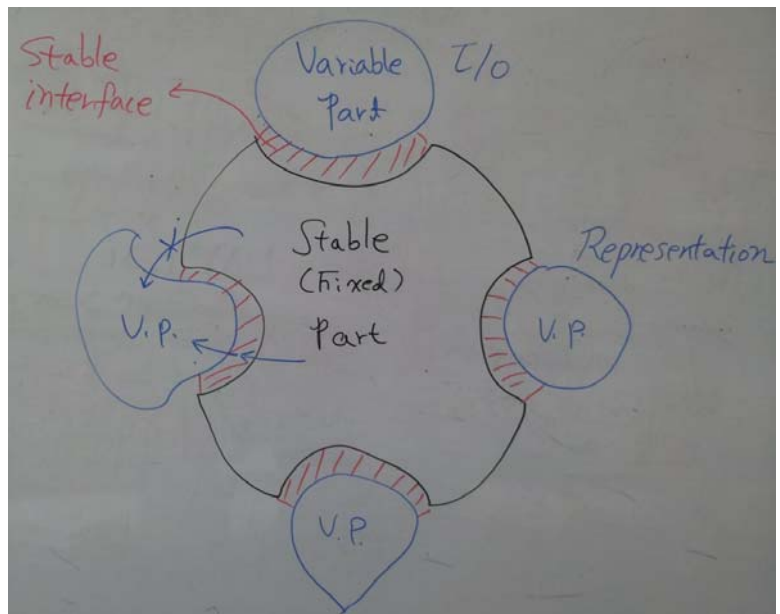 Stable
interface
Variable
Part
I/O
Stable
(Fixed)
Part
Representation
V.P.
V.P.
V.P.